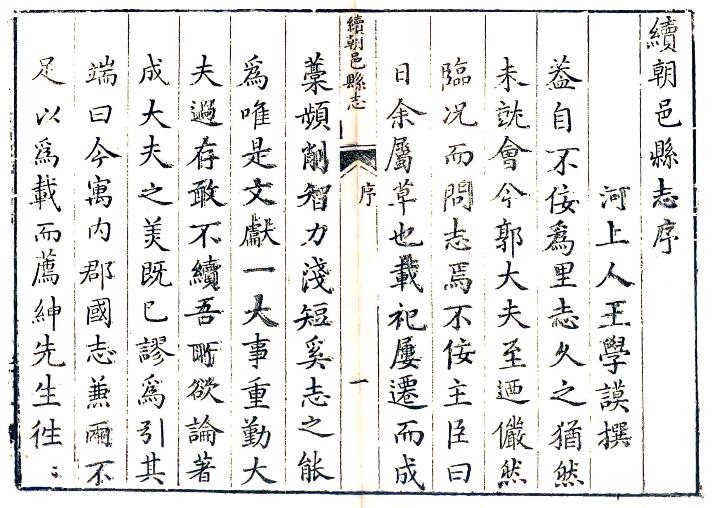 續朝邑縣志序
河上人王學謨撰
葢自不佞爲里志久之猶然
未訧會今郭大夫至迺儼然
臨况而問志焉不佞主臣曰
日余屬草也載祀屢遷而成
續朝邑縣志
序
一
藁頻削智力淺短奚志之能
爲唯是文獻一大事重勤大
夫過存敢不續吾所欲論著
成大夫之美既已謬爲引其
端曰今寓内郡國志兼兩不
足以爲載而薦紳先生徃〻